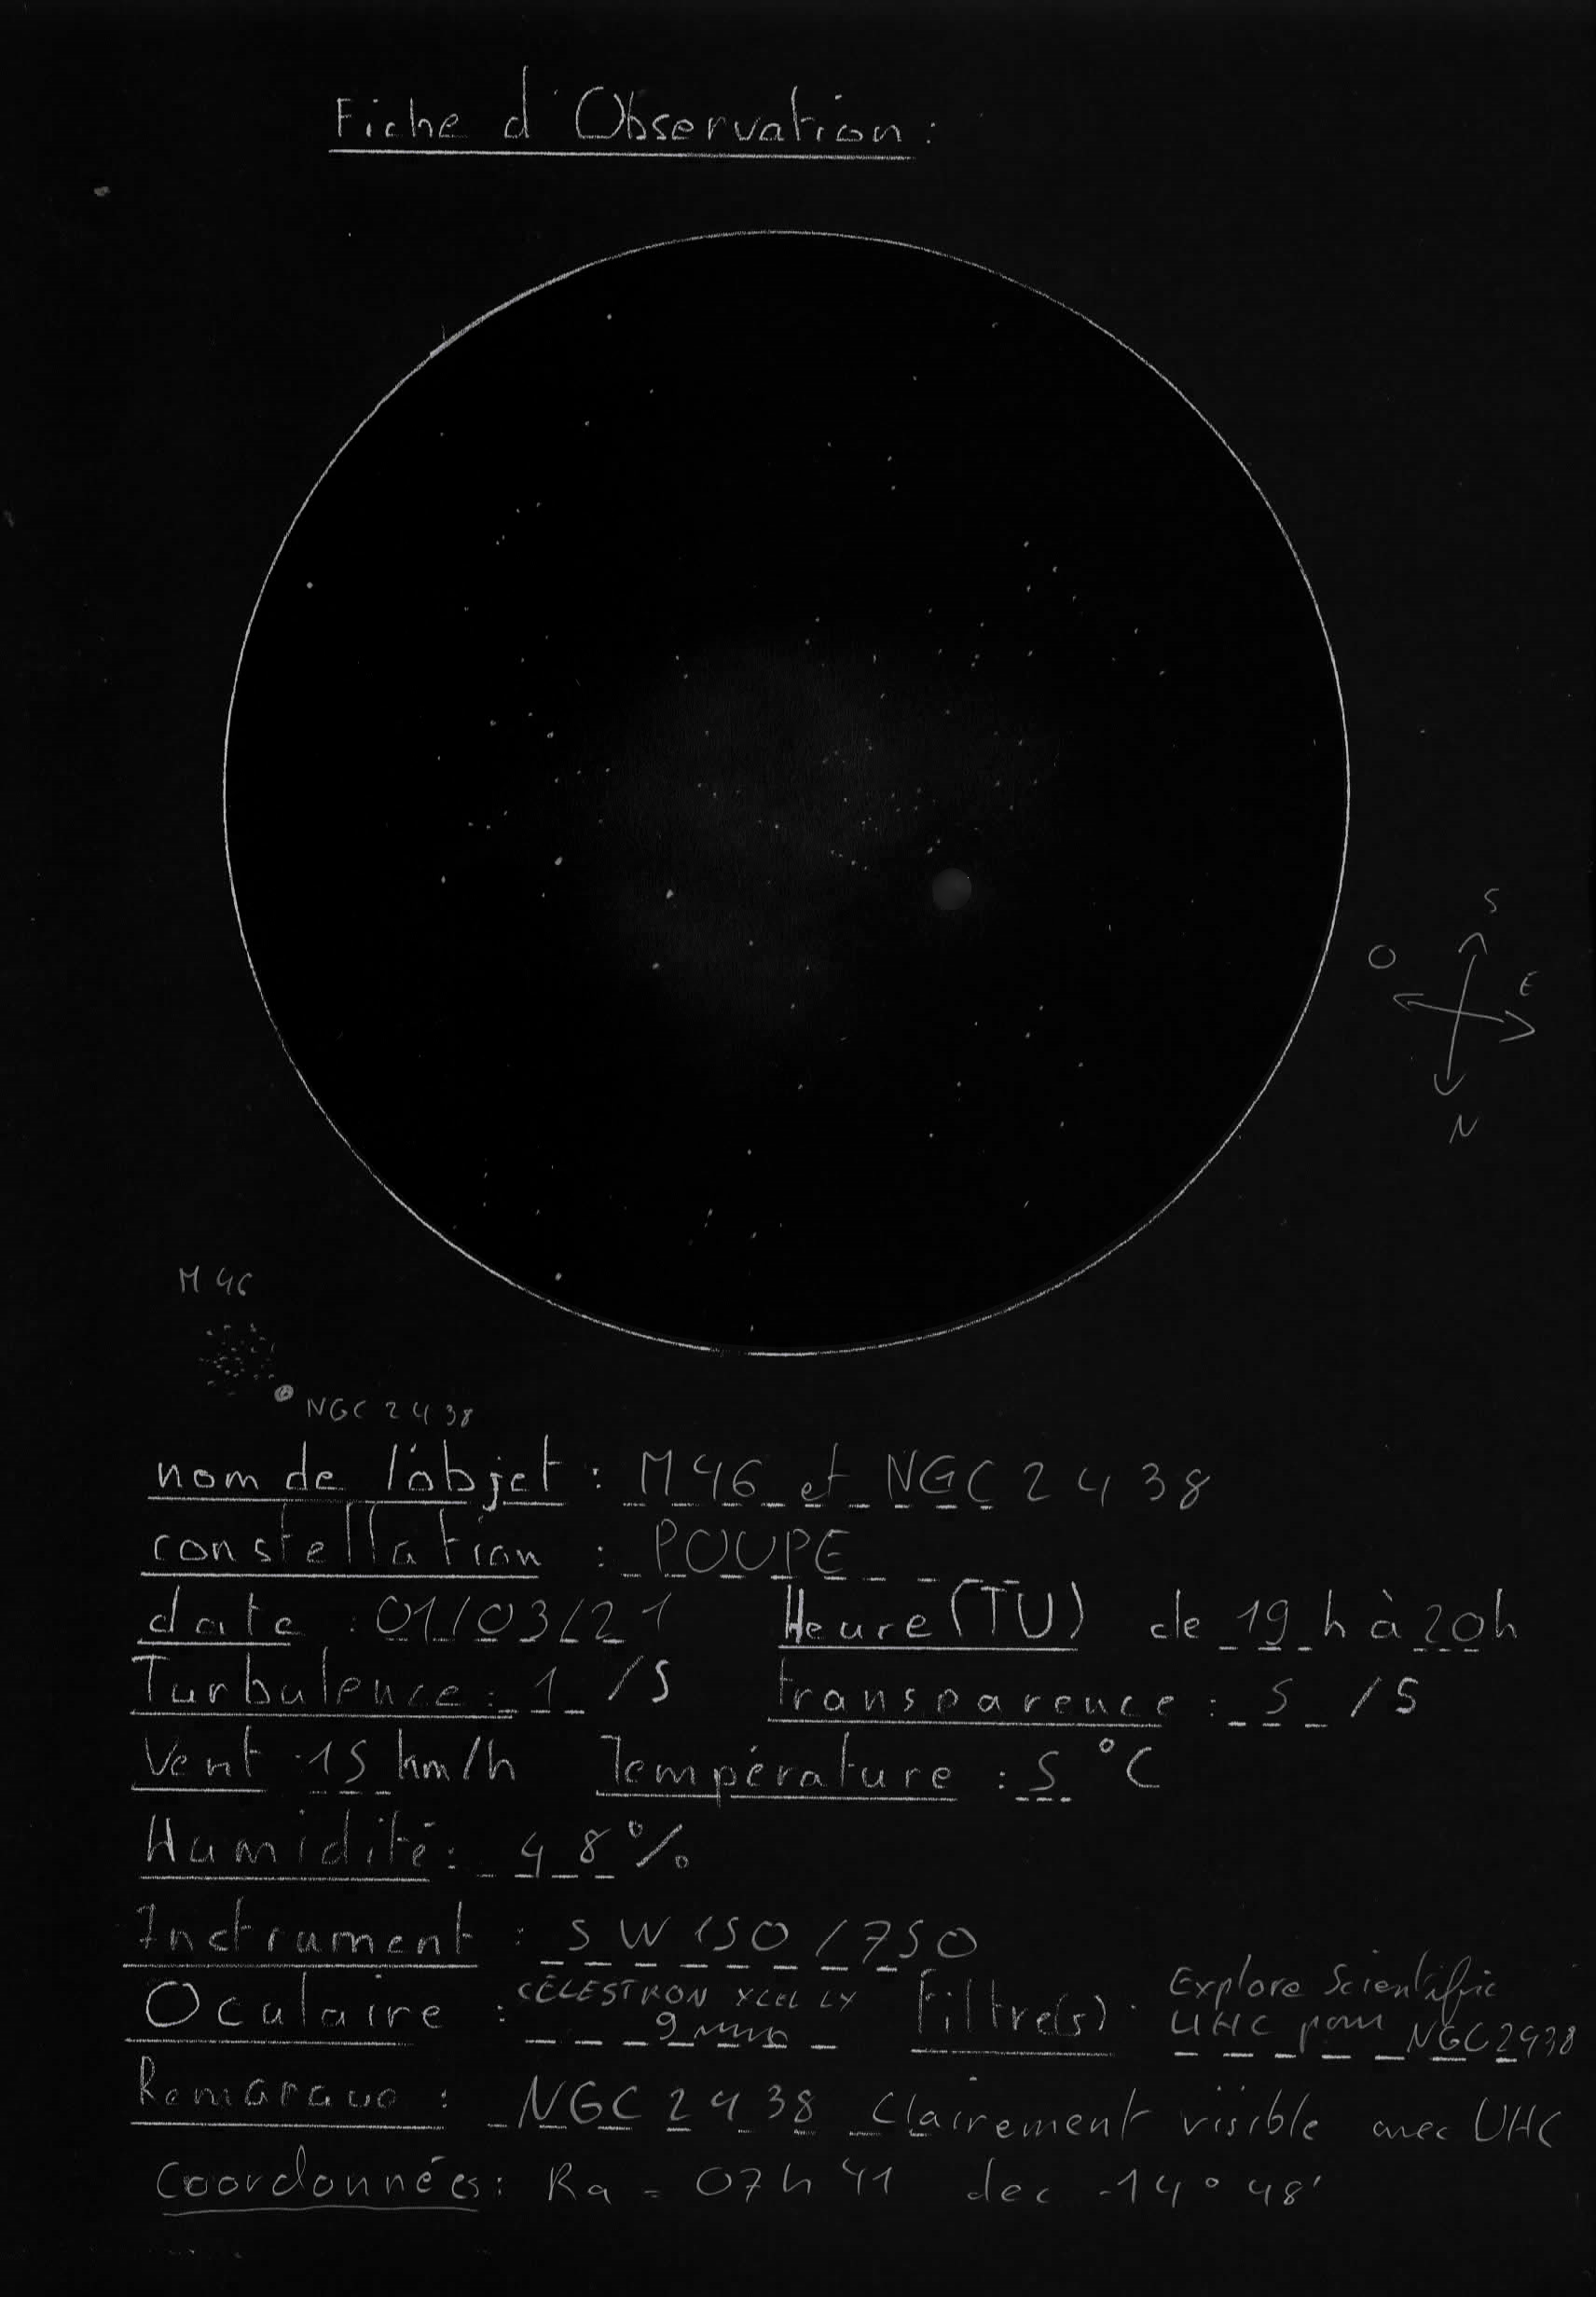 Fiche d'Observation :
S
O
E
N
M 46
NGC 2438
nom de l'objet : M46 et NGC 2438
constellation : POUPE
date : 01/03/21 Heure (TU) de 19 h à 20h
Turbulence : 1 /5 transparence : 5 /5
Vent 15 km/h Température : 5 °C
Humidité : 48%
Instrument : SW 150/750
Oculaire : CELESTRON XCEL LX 9 mm Filtre(s) : Explore Scientific UHC pour NGC2438
Remarque : NGC 2438 Clairement visible avec UHC
Coordonnées : Ra = 07h 41 dec -14° 48'